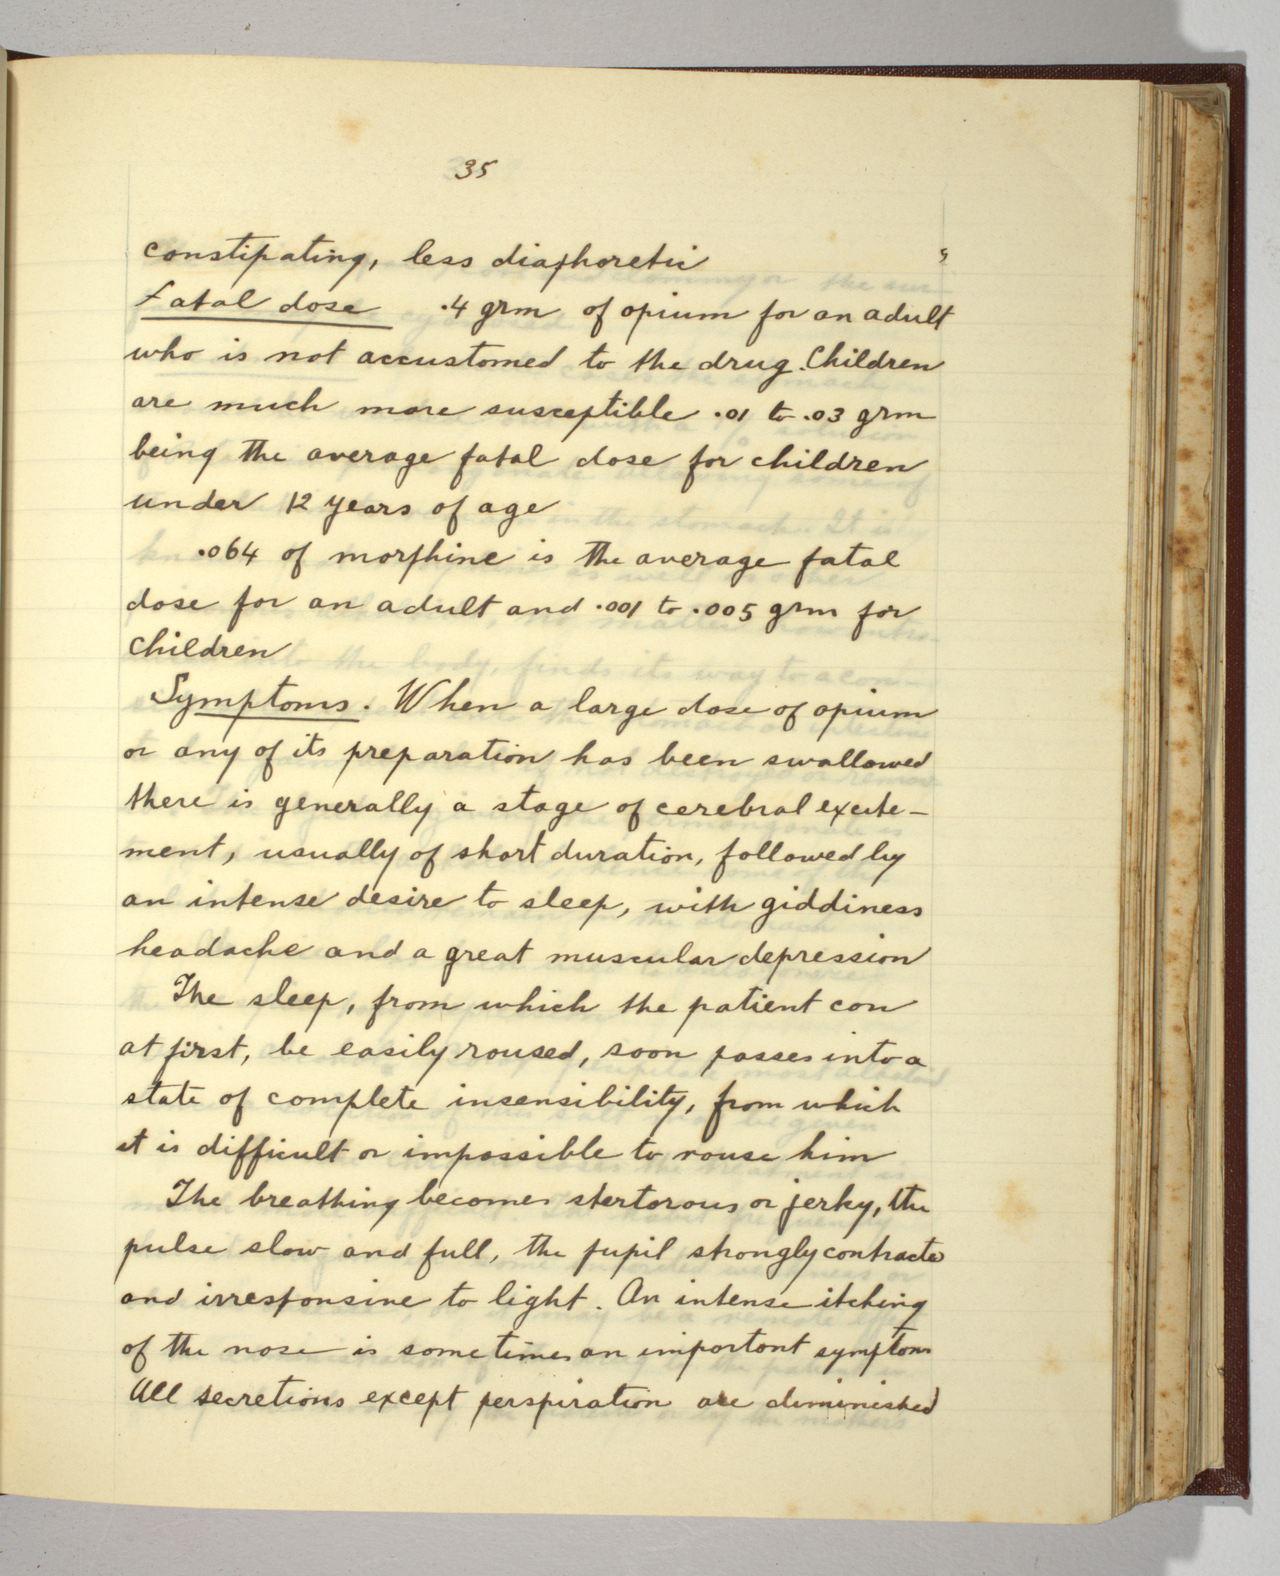 35
constipating, less diaphoretic
Fatal dose .4 grm of opium for an adult
who is not accustomed to the drug. Children
are much more susceptible .01 to .03 grm
being the average fatal dose for children
under 12 years of age
.064 of morphine is the average fatal
dose for an adult and .001 to .005 grm for
children
Symptoms. When a large dose of opium
or any of its preparation has been swallowed
there is generally a stage of cerebral excite-
ment, usually of short duration, followed by
an intense desire to sleep, with giddiness
headache and a great muscular depression
The sleep, from which the patient can
at first, be easily roused, soon passes into a
state of complete insensibility, from which
it is difficult or impossible to rouse him
The breathing becomes stertorous or jerky, the
pulse slow and full, the pupil strongly contracted
and irresponsive to light. An intense itching
of the nose is sometimes an important symptom
All secretions except perspiration are diminished